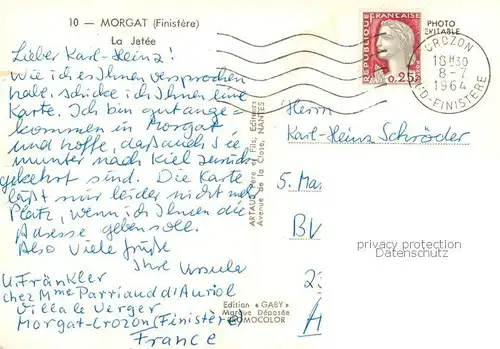 10 — MORGAT (Finistère)
La Jetée
PHOTO
VÉRITABLE
RÉPUBLIQUE FRANÇAISE
0,25
CROZON
18H30
8-7
1964
FINISTÈRE
Lieber Karl-Heinz!
Wie ich es Ihnen versprochen
habe, schicke ich Ihnen eine
Karte. Ich bin gut ange=
kommen in Morgat,
und hoffe, daß auch Sie
munter nach Kiel zurück
gekehrt sind. Die Karte
läßt mir leider nicht mehr
Platz, wenn ich Ihnen die
Adresse geben soll.
Also Viele Grüße
Ihre Ursula
U. Fränkler
chez Mme Parriaud d'Auriol
Villa le Verger
Morgat-Crozon (Finistère)
France
ARTAUD Père et Fils, Editeurs
Avenue de la Close, NANTES
Edition «GABY»
Marque Déposée
Herrn
Karl-Heinz Schröder
5. Mas
BV
23
privacy protection
Datenschutz